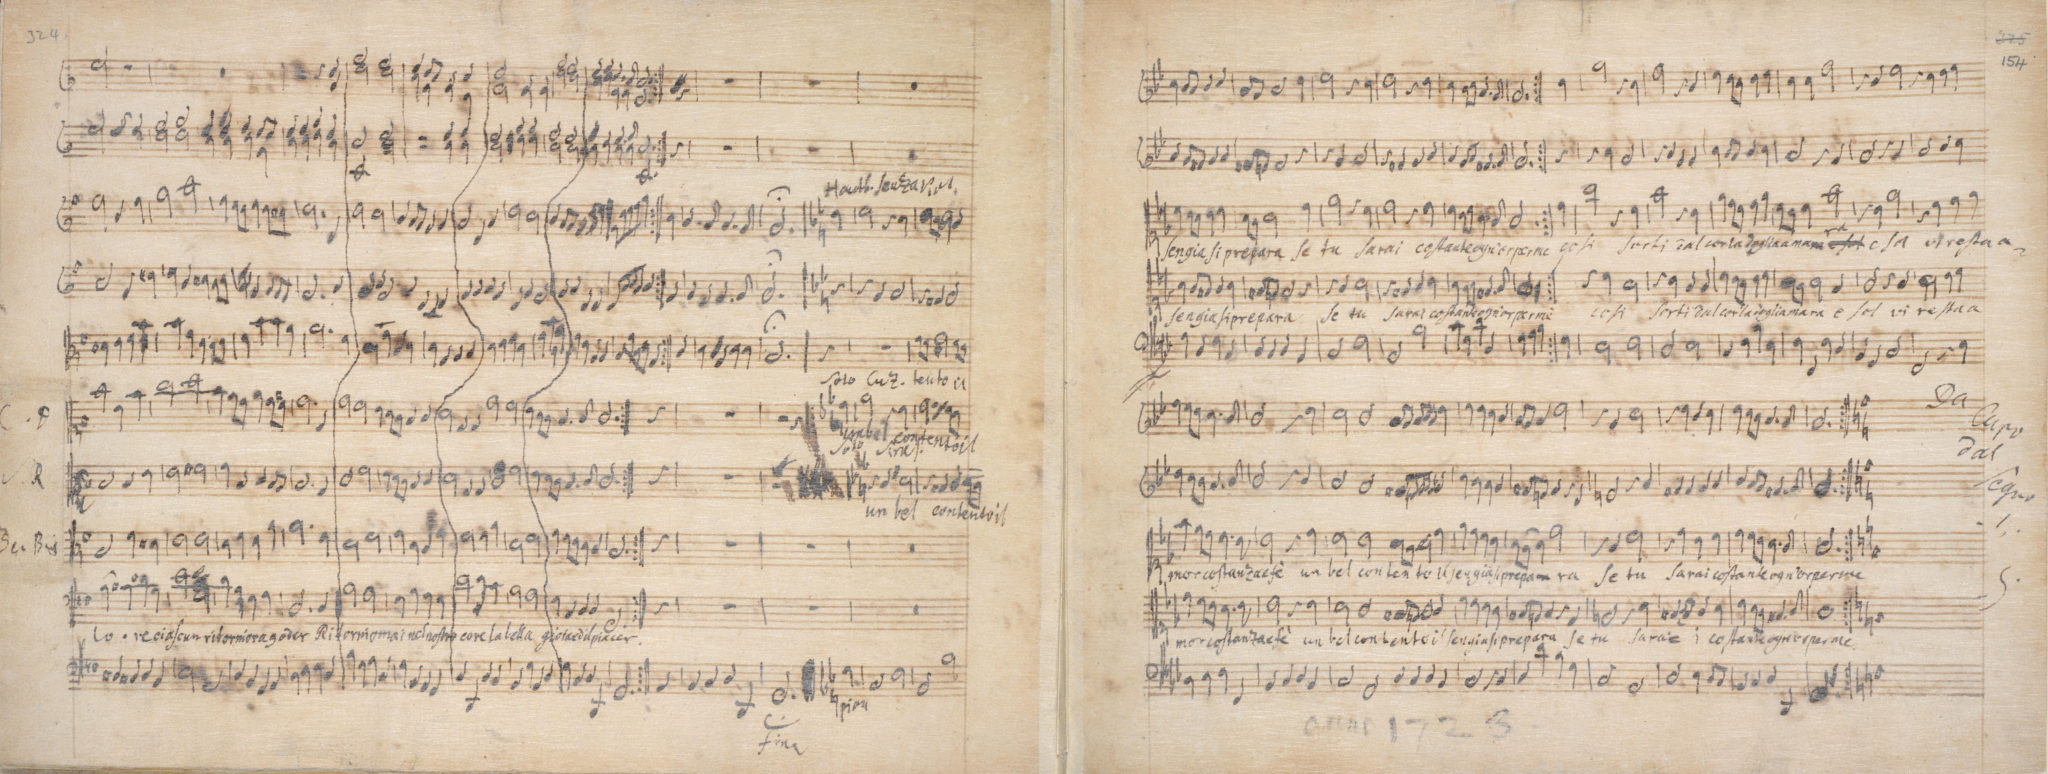 324
Hautb. senza Viol.
solo Cuz. tento il
un bel contento il
un bel contento il
C
R
Be Bas
lo . re ciascun ritorni ora goder Ritorni omai nel nostro core la bella gioia ed il piacer.
pian
fine
325
154
sen già si prepara se tu sarai costante ogn'or per me così sorti dal cor la doglia amara e sol vi resta a
sen già si prepara se tu sarai costante ogn'or per me così sorti dal cor la doglia amara e sol vi resta a
Da
Capo
dal
Segno
mor costanza e fè un bel contento il sen già si prepara se tu sarai costante ogn'or per me
mor costanza e fè un bel contento il sen già si prepara se tu sarai costante ogn'or per me.
1723